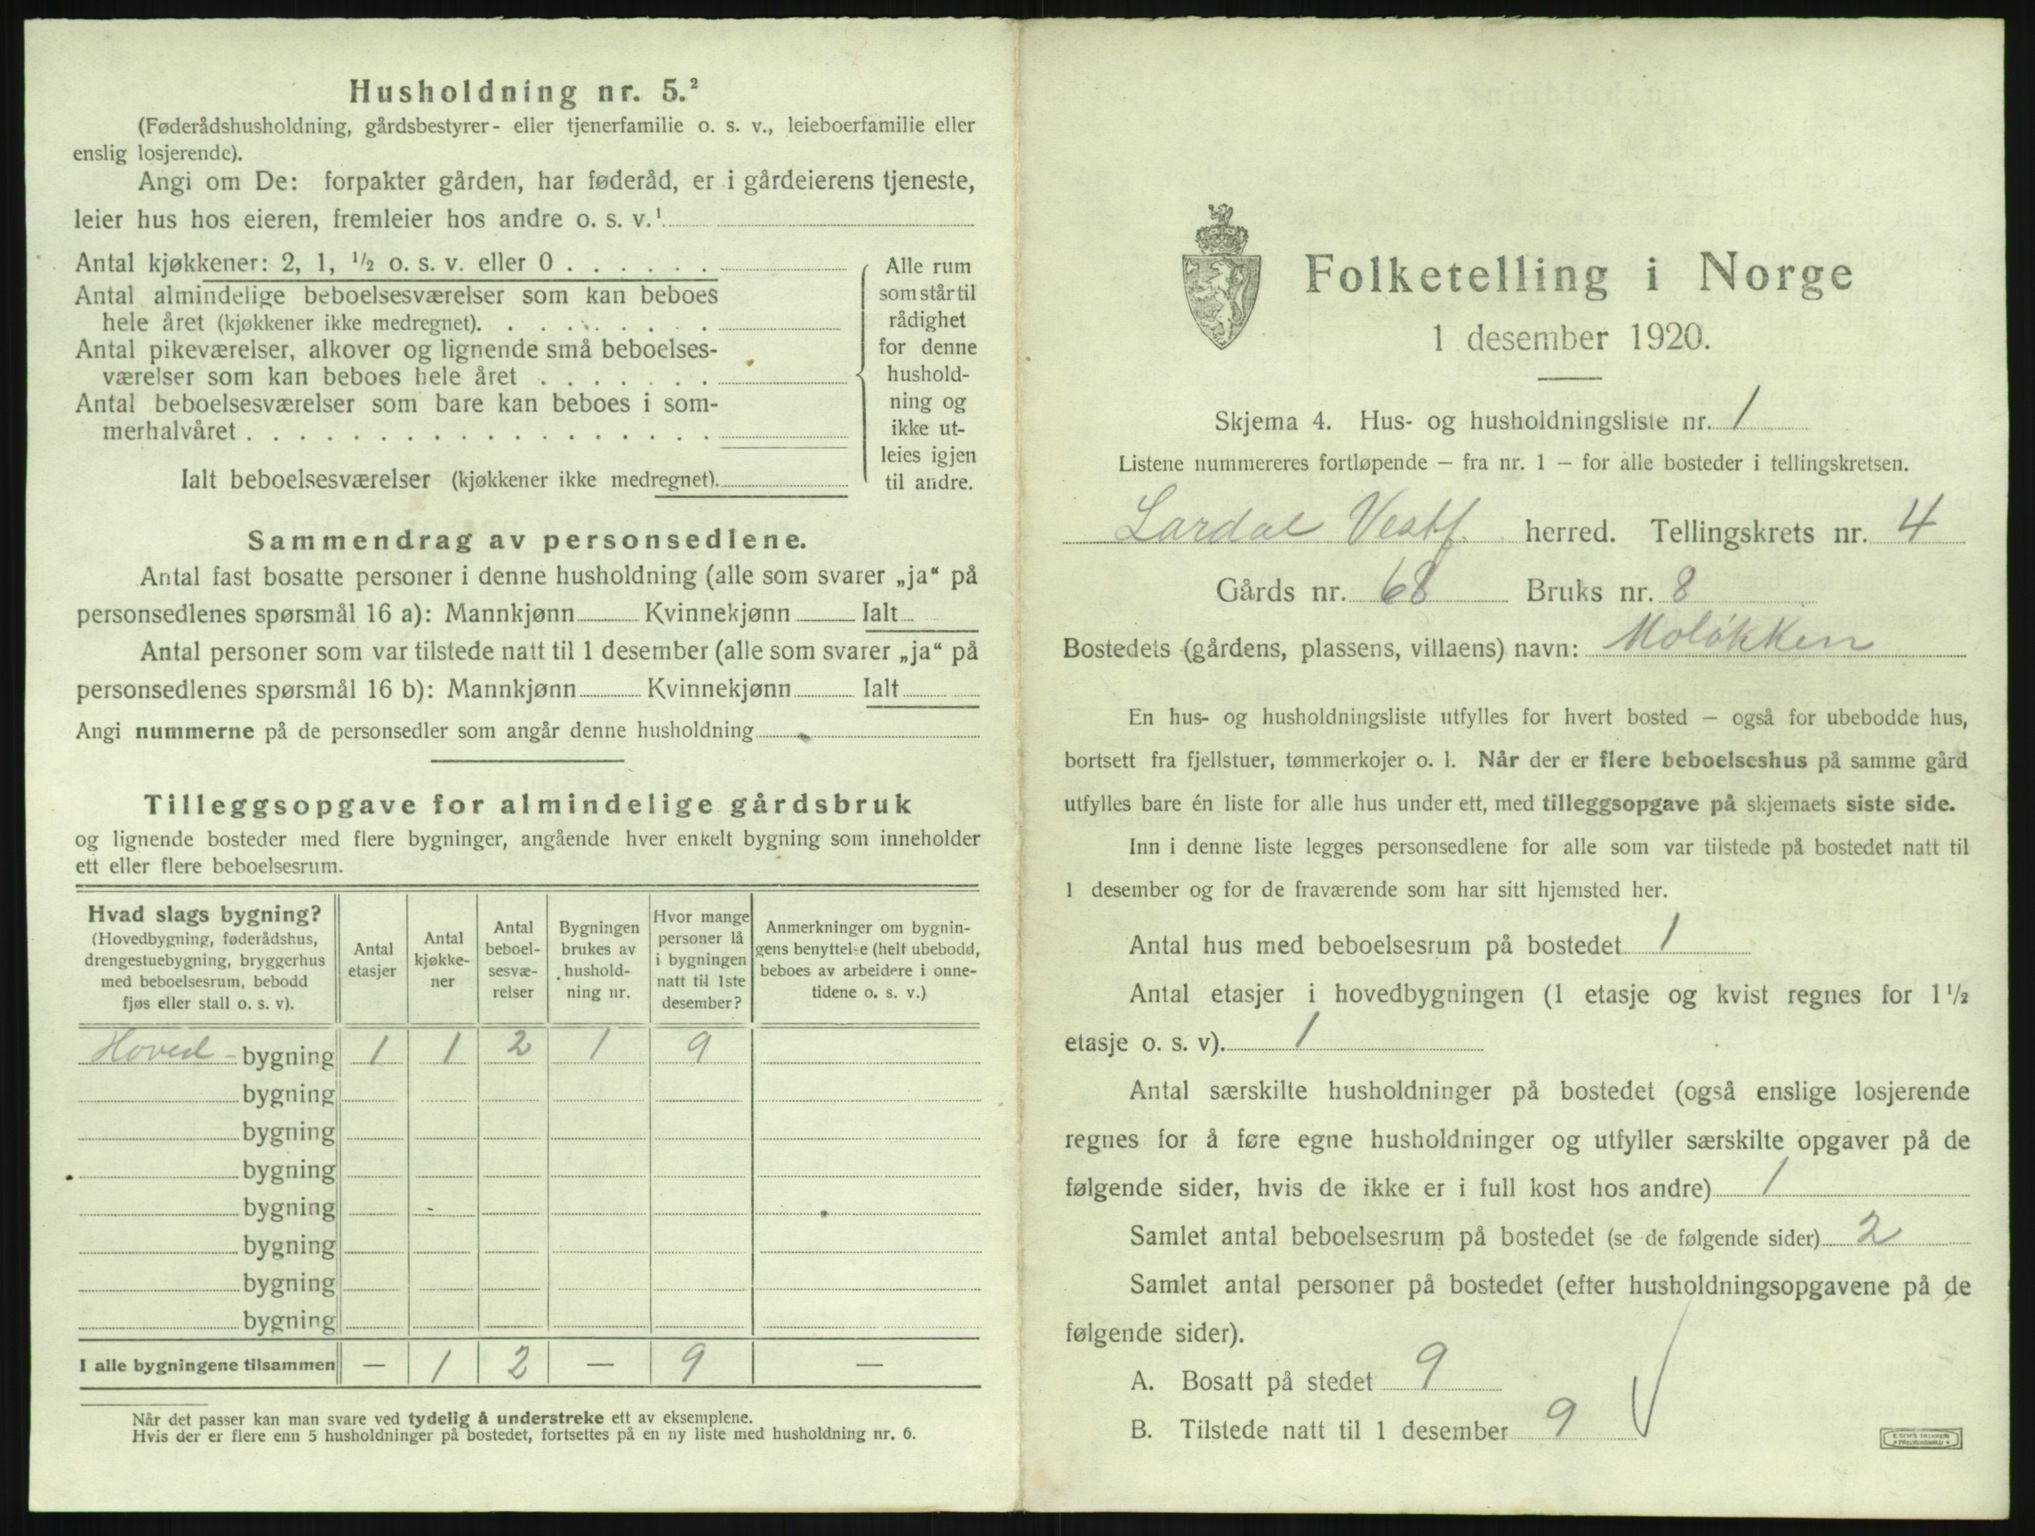 Husholdning nr. 5.²
(Føderådshusholdning, gårdsbestyrer- eller tjenerfamilie o. s. v., leieboerfamilie eller
enslig losjerende).
Angi om De: forpakter gården, har føderåd, er i gårdeierens tjeneste,
leier hus hos eieren, fremleier hos andre o. s. v.¹
Antal kjøkkener: 2, 1, ½ o. s. v. eller 0 . . . . . .
Antal almindelige beboelsesværelser som kan beboes
hele året (kjøkkener ikke medregnet). . . . . . . . .
Antal pikeværelser, alkover og lignende små beboelses-
værelser som kan beboes hele året . . . . . . .
Antal beboelsesværelser som bare kan beboes i som-
merhalvåret . . . . . . . . . . . . . . . . . .
Ialt beboelsesværelser (kjøkkener ikke medregnet).
Alle rum
som står til
rådighet
for denne
hushold-
ning og
ikke ut-
leies igjen
til andre.
Sammendrag av personsedlene.
Antal fast bosatte personer i denne husholdning (alle som svarer „ja“ på
personsedlenes spørsmål 16 a): Mannkjønn Kvinnekjønn Ialt
Antal personer som var tilstede natt til 1 desember (alle som svarer „ja“ på
personsedlenes spørsmål 16 b): Mannkjønn Kvinnekjønn Ialt
Angi nummerne på de personsedler som angår denne husholdning
Tilleggsopgave for almindelige gårdsbruk
og lignende bosteder med flere bygninger, angående hver enkelt bygning som inneholder
ett eller flere beboelsesrum.
Hvad slags bygning?
(Hovedbygning, føderådshus,
drengestuebygning, bryggerhus
med beboelsesrum, bebodd
fjøs eller stall o. s. v).
Antal
etasjer
Antal
kjøkke-
ner
Antal
beboel-
sesvæ-
relser
Bygningen
brukes av
hushold-
ning nr.
Hvor mange
personer lå
i bygningen
natt til 1ste
desember?
Anmerkninger om bygnin-
gens benyttelse (helt ubebodd,
beboes av arbeidere i onne-
tidene o. s. v.)
Hoved - bygning 1 1 2 1 9
bygning
bygning
bygning
bygning
bygning
bygning
bygning
I alle bygningene tilsammen — 1 2 — 9 —
Når det passer kan man svare ved tydelig å understreke ett av eksemplene.
Hvis der er flere enn 5 husholdninger på bostedet, fortsettes på en ny liste med husholdning nr. 6.
Folketelling i Norge
1 desember 1920.
Skjema 4. Hus- og husholdningsliste nr. 1
Listene nummereres fortløpende – fra nr. 1 – for alle bosteder i tellingskretsen.
Lardal Vestf. herred. Tellingskrets nr. 4
Gårds nr. 68 Bruks nr. 8
Bostedets (gårdens, plassens, villaens) navn: Moløkken
En hus- og husholdningsliste utfylles for hvert bosted – også for ubebodde hus,
bortsett fra fjellstuer, tømmerkojer o. l. Når der er flere beboelseshus på samme gård
utfylles bare én liste for alle hus under ett, med tilleggsopgave på skjemaets siste side.
Inn i denne liste legges personsedlene for alle som var tilstede på bostedet natt til
1 desember og for de fraværende som har sitt hjemsted her.
Antal hus med beboelsesrum på bostedet 1
Antal etasjer i hovedbygningen (1 etasje og kvist regnes for 1½
etasje o. s. v). 1
Antal særskilte husholdninger på bostedet (også enslige losjerende
regnes for å føre egne husholdninger og utfyller særskilte opgaver på de
følgende sider, hvis de ikke er i full kost hos andre) 1
Samlet antal beboelsesrum på bostedet (se de følgende sider) 2
Samlet antal personer på bostedet (efter husholdningsopgavene på de
følgende sider).
A. Bosatt på stedet 9
B. Tilstede natt til 1 desember 9